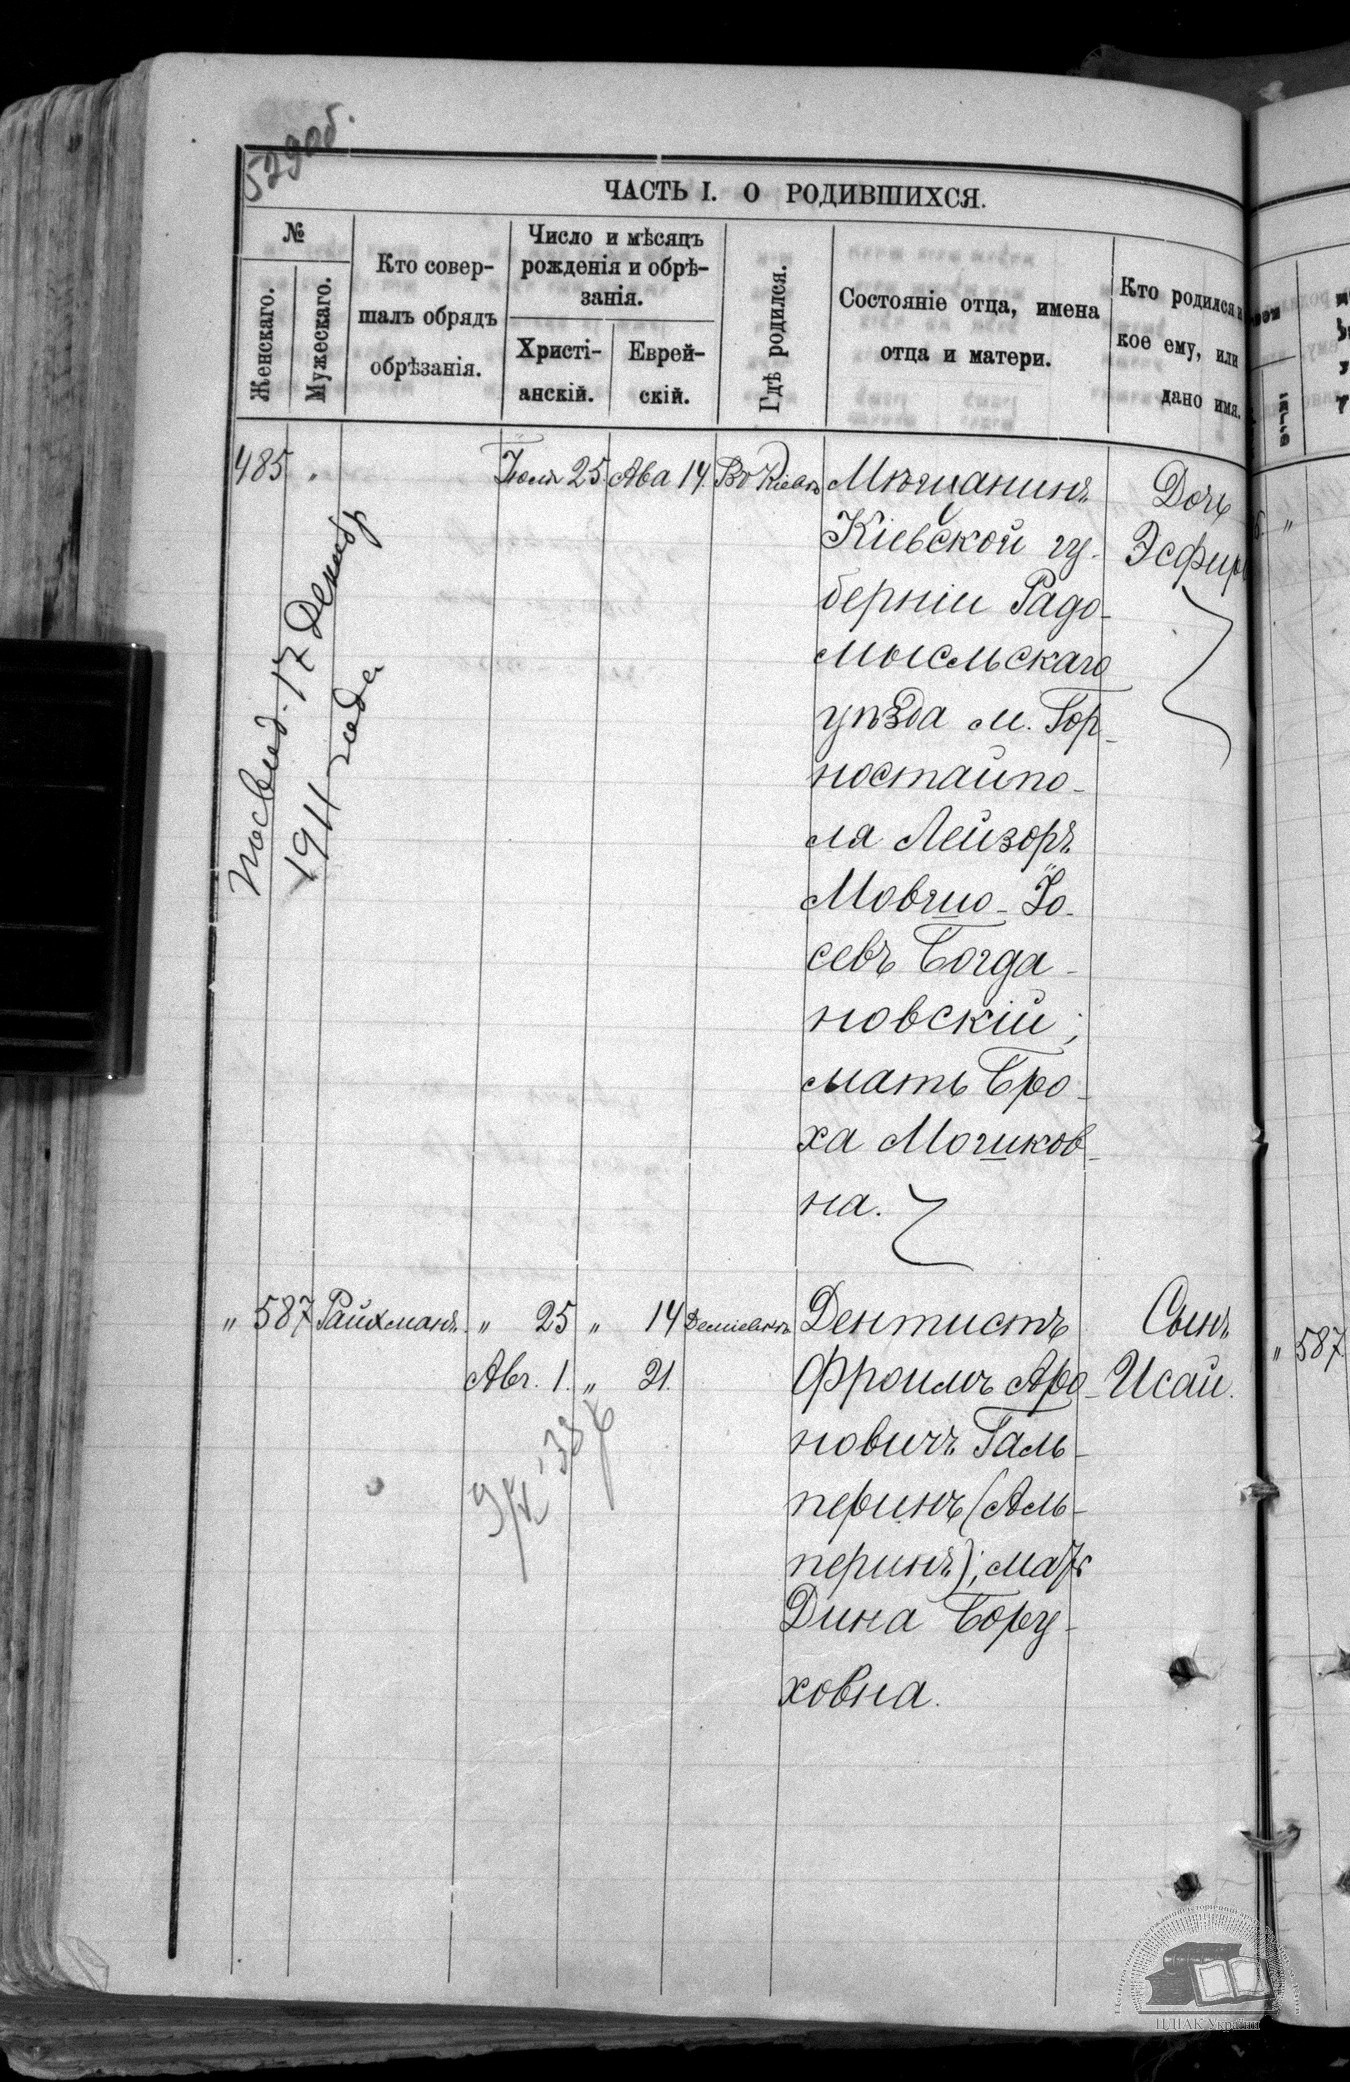 529об.
ЧАСТЬ I. О РОДИВШИХСЯ.
№
Женскаго.
Мужескаго.
Кто совер-
шалъ обрядъ
обрѣзанія.
Число и мѣсяцъ
рожденія и обрѣ-
занія.
Христі-
анскій.
Еврей-
скій.
Гдѣ родился.
Состояніе отца, имена
отца и матери.
Кто родился и
кое ему, или
дано имя.
485 „ Іюля 25. Ава 14. Въ Кіевѣ
Мѣщанинъ
Кіевской гу-
берніи Радо-
мысльскаго
уѣзда м. Гор-
ностайпо-
ля Лейзоръ
Мовшо-Іо-
севъ Богда-
новскій;
мать Бро-
ха Мошков-
на.
Дочь
Эсфирь
Посвид. 17 Декабр
1911 года
„ 587 Райхманъ. „ 25 „ 14 Деміевкѣ
Авг. 1. „ 21.
Дентистъ
Фроимъ Аро-
новичъ Галь-
перинъ (Аль-
перинъ); мать
Дина Бору-
ховна.
Сынъ
Исай.
„ 587
ЦДІАК України